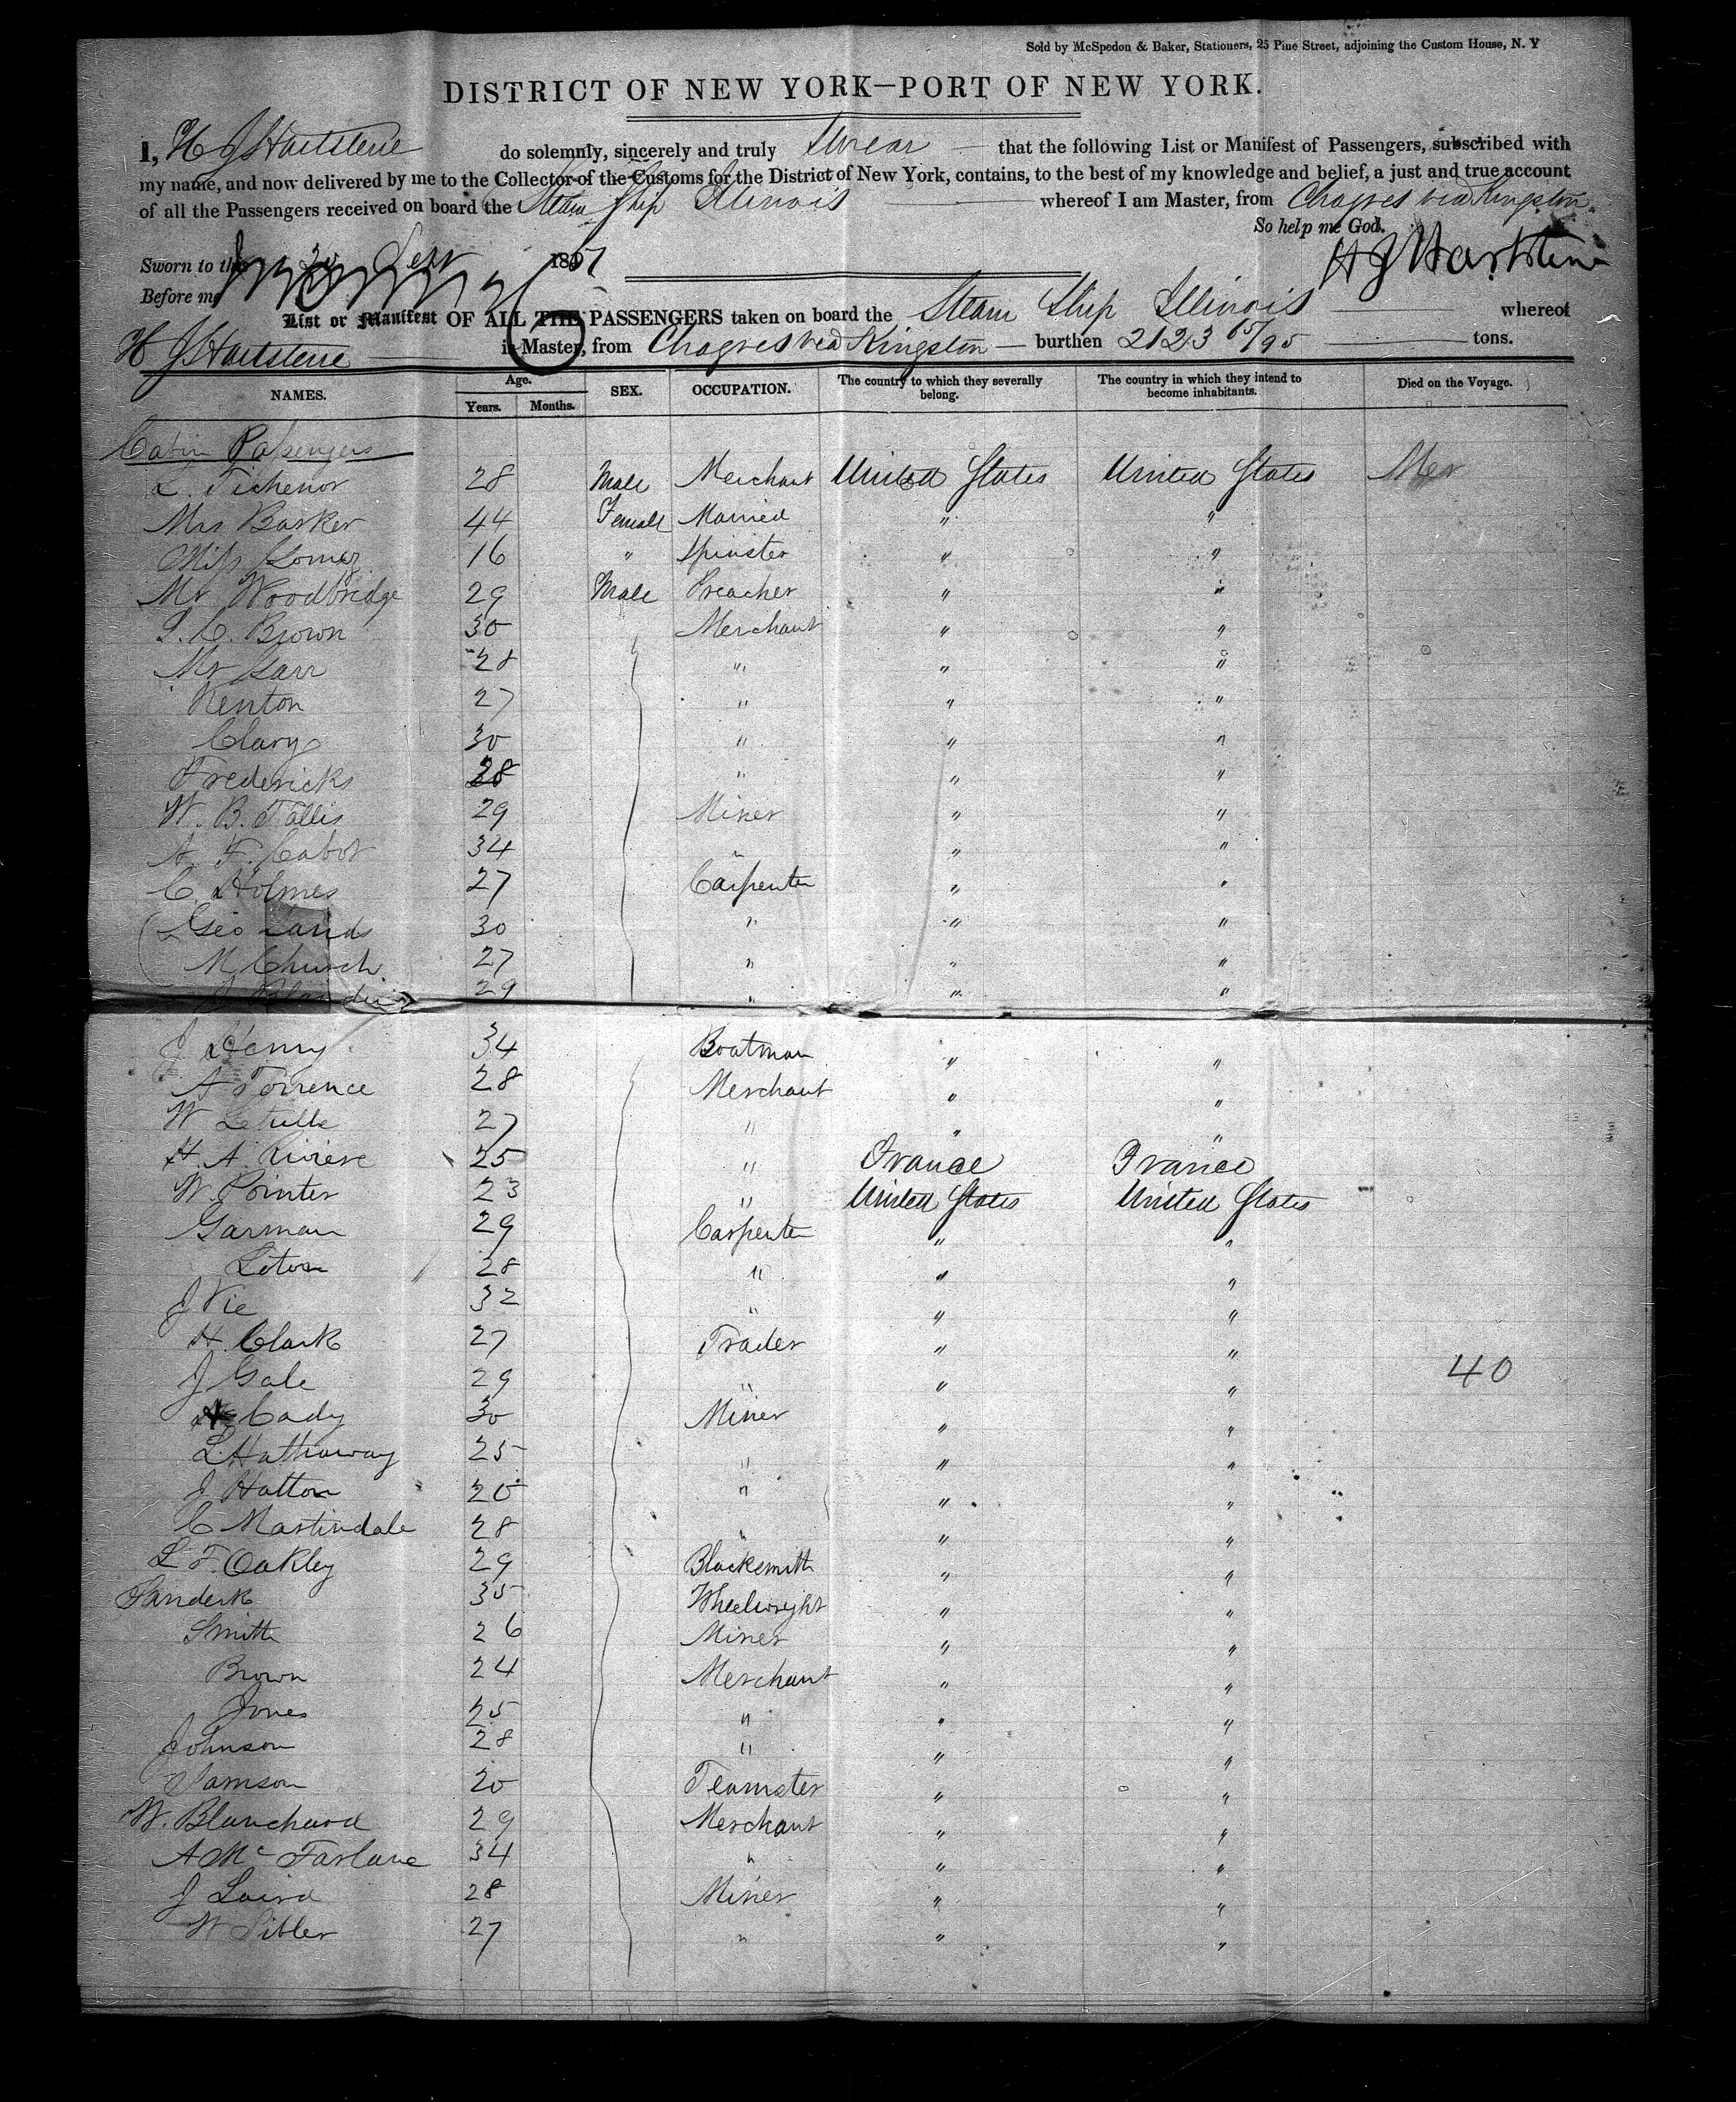 Sold by McSpedon & Baker, Stationers, 25 Pine Street, adjoining the Custom House, N. Y
DISTRICT OF NEW YORK—PORT OF NEW YORK.
I, H J Hartstene do solemnly, sincerely and truly Swear that the following List or Manifest of Passengers, subscribed with
my name, and now delivered by me to the Collector of the Customs for the District of New York, contains, to the best of my knowledge and belief, a just and true account
of all the Passengers received on board the Steam Ship Illinois whereof I am Master, from Chagres via Kingston
So help me God.
Sworn to this 185 H J Hartstene
Before me
List or Manifest OF ALL THE PASSENGERS taken on board the Steam Ship Illinois whereof
H J Hartstene is Master, from Chagres via Kingston burthen 2123 65/95 tons.
NAMES. Age. Years. Months. SEX. OCCUPATION. The country to which they severally belong. The country in which they intend to become inhabitants. Died on the Voyage.
Cabin Passengers
L. Tichenor 28 Male Merchant United States United States
Mrs Barker 44 Female Married " "
Miss Gomez 16 " Spinster " "
Mr Woodbridge 29 Male Preacher " "
S. C. Brown 30 Merchant " "
Mr 28 " " "
Kenton 27 " " "
Clary 30 " " "
Fredericks 28 " " "
W. B. Tallis 29 Miner " "
A. F. Cabot 34 " " "
C. Holmes 27 Carpenter " "
Geo Lands 30 " " "
M Church 27 " " "
J 29 " " "
J Henry 34 Boatman " "
A Torrence 28 Merchant " "
W 27 " " "
H. A. Riviere 25 " France France
W. Pointer 23 " United States United States
Garman 29 Carpenter " "
Loton 28 " " "
J Vie 32 " " "
H. Clark 27 Trader " "
J Gale 29 " " " 40
Cady 30 Miner " "
L. Hathaway 25 " " "
J Hatton 20 " " "
C Martindale 28 " " "
L F. Oakley 29 Blacksmith " "
35 Wheelwright " "
Smith 26 Miner " "
Brown 24 Merchant " "
Jones 25 " " "
Johnson 28 " " "
Samson 20 Teamster " "
W. Blanchard 29 Merchant " "
A Mc Farlane 34 " " "
J Laird 28 Miner " "
W Sibler 27 " " "